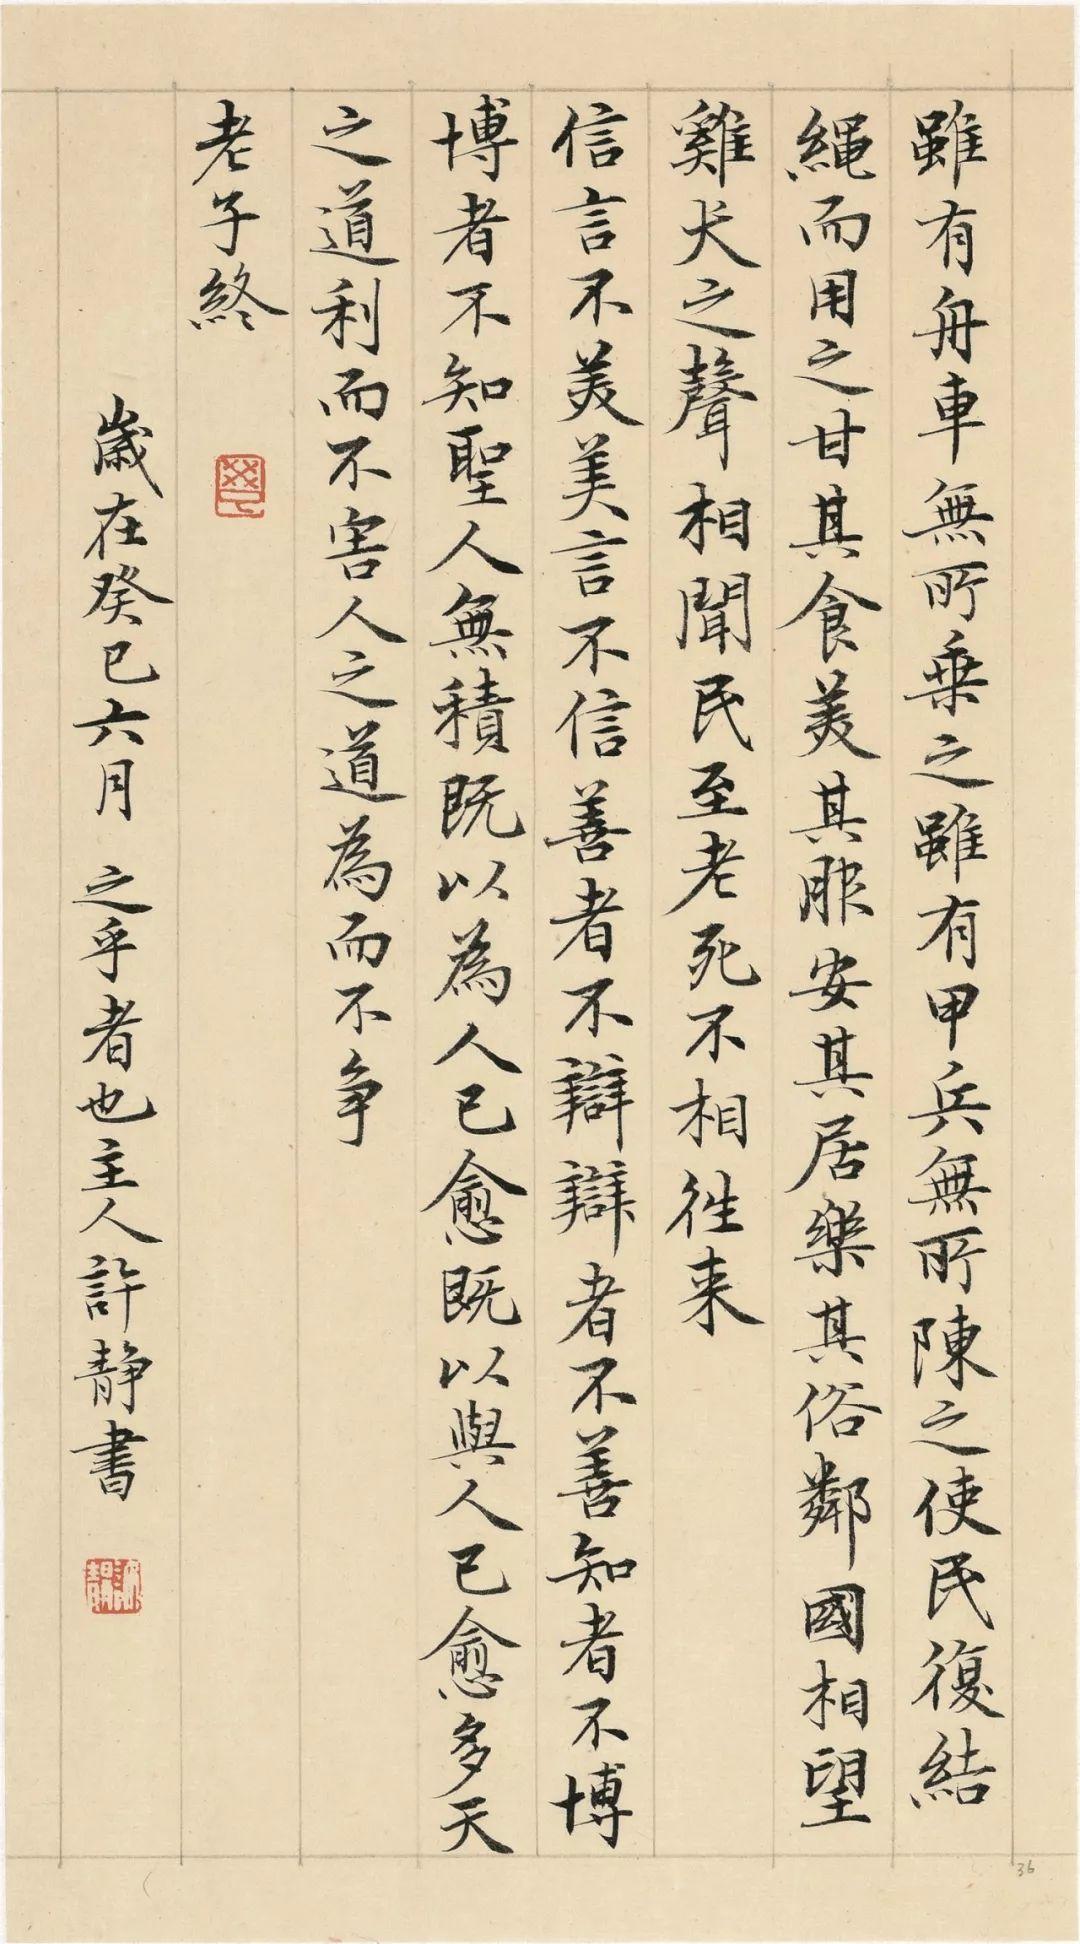 雖有舟車無所乗之雖有甲兵無所陳之使民復結
繩而用之甘其食美其服安其居樂其俗鄰國相望
雞犬之聲相聞民至老死不相往来
信言不美美言不信善者不辯辯者不善知者不博
博者不知聖人無積既以為人己愈既以與人己愈多天
之道利而不害人之道為而不争
老子終
歲在癸巳六月 之乎者也主人許静書
36